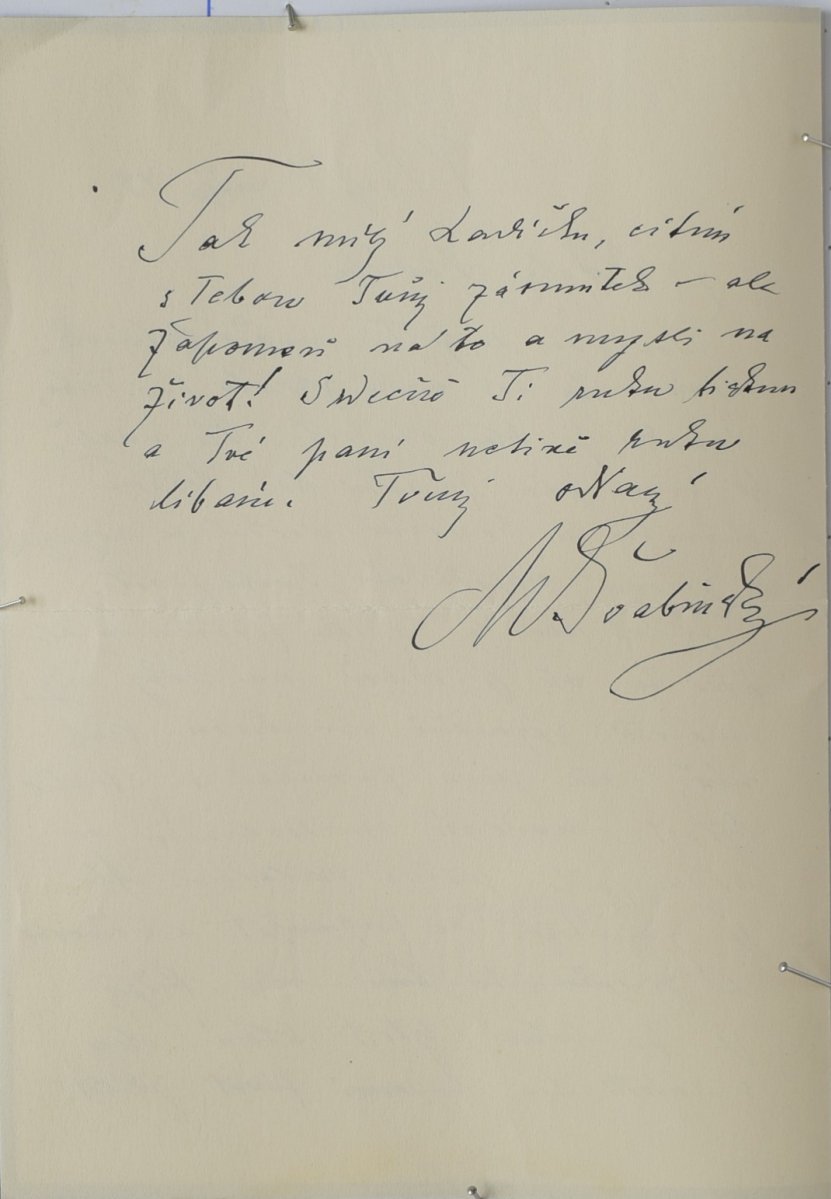 Tak milý Ladíčku, cítím
s Tebou Tvůj zármutek – ale
zapomeň na to a mysli na
život! Srdečně Ti ruku tisknu
a Tvé paní uctivě ruku
líbám. Tvůj oddaný
MŠvabinský